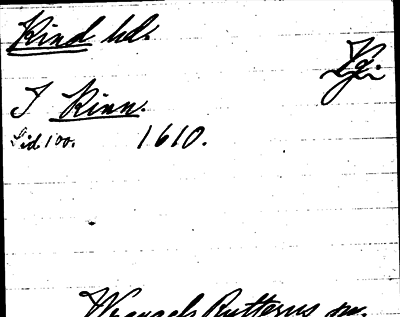 Kind hd.
Vg.
I Kinn.
Lid. 100. 1610.
Wrangels Rytterus